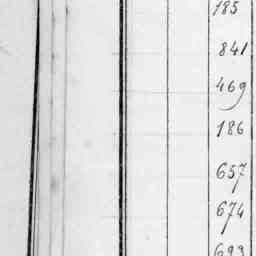 185
841
469
186
657
674
693